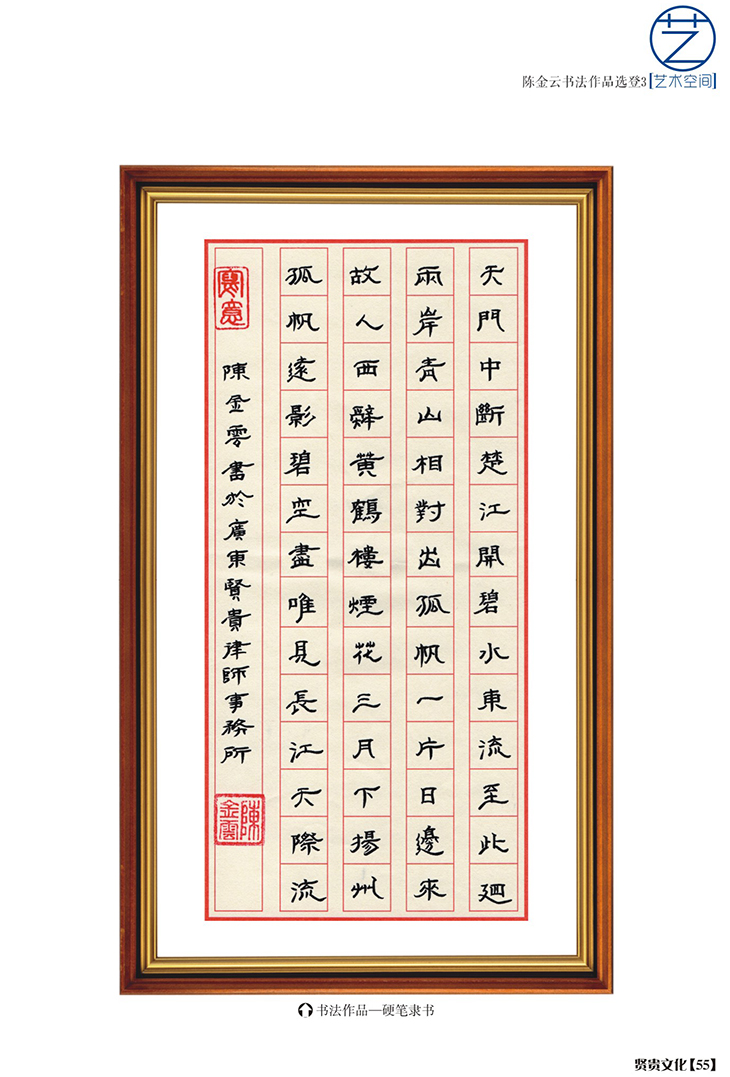 艺
陈金云书法作品选登3【艺术空间】
天門中斷楚江開碧水東流至此廻
兩岸青山相對出孤帆一片日邊來
故人西辭黃鶴樓煙花三月下揚州
孤帆遠影碧空盡唯見長江天際流
寫意
陳金雲書於廣東賢貴律師事務所
陳金雲
书法作品—硬笔隶书
贤贵文化【55】